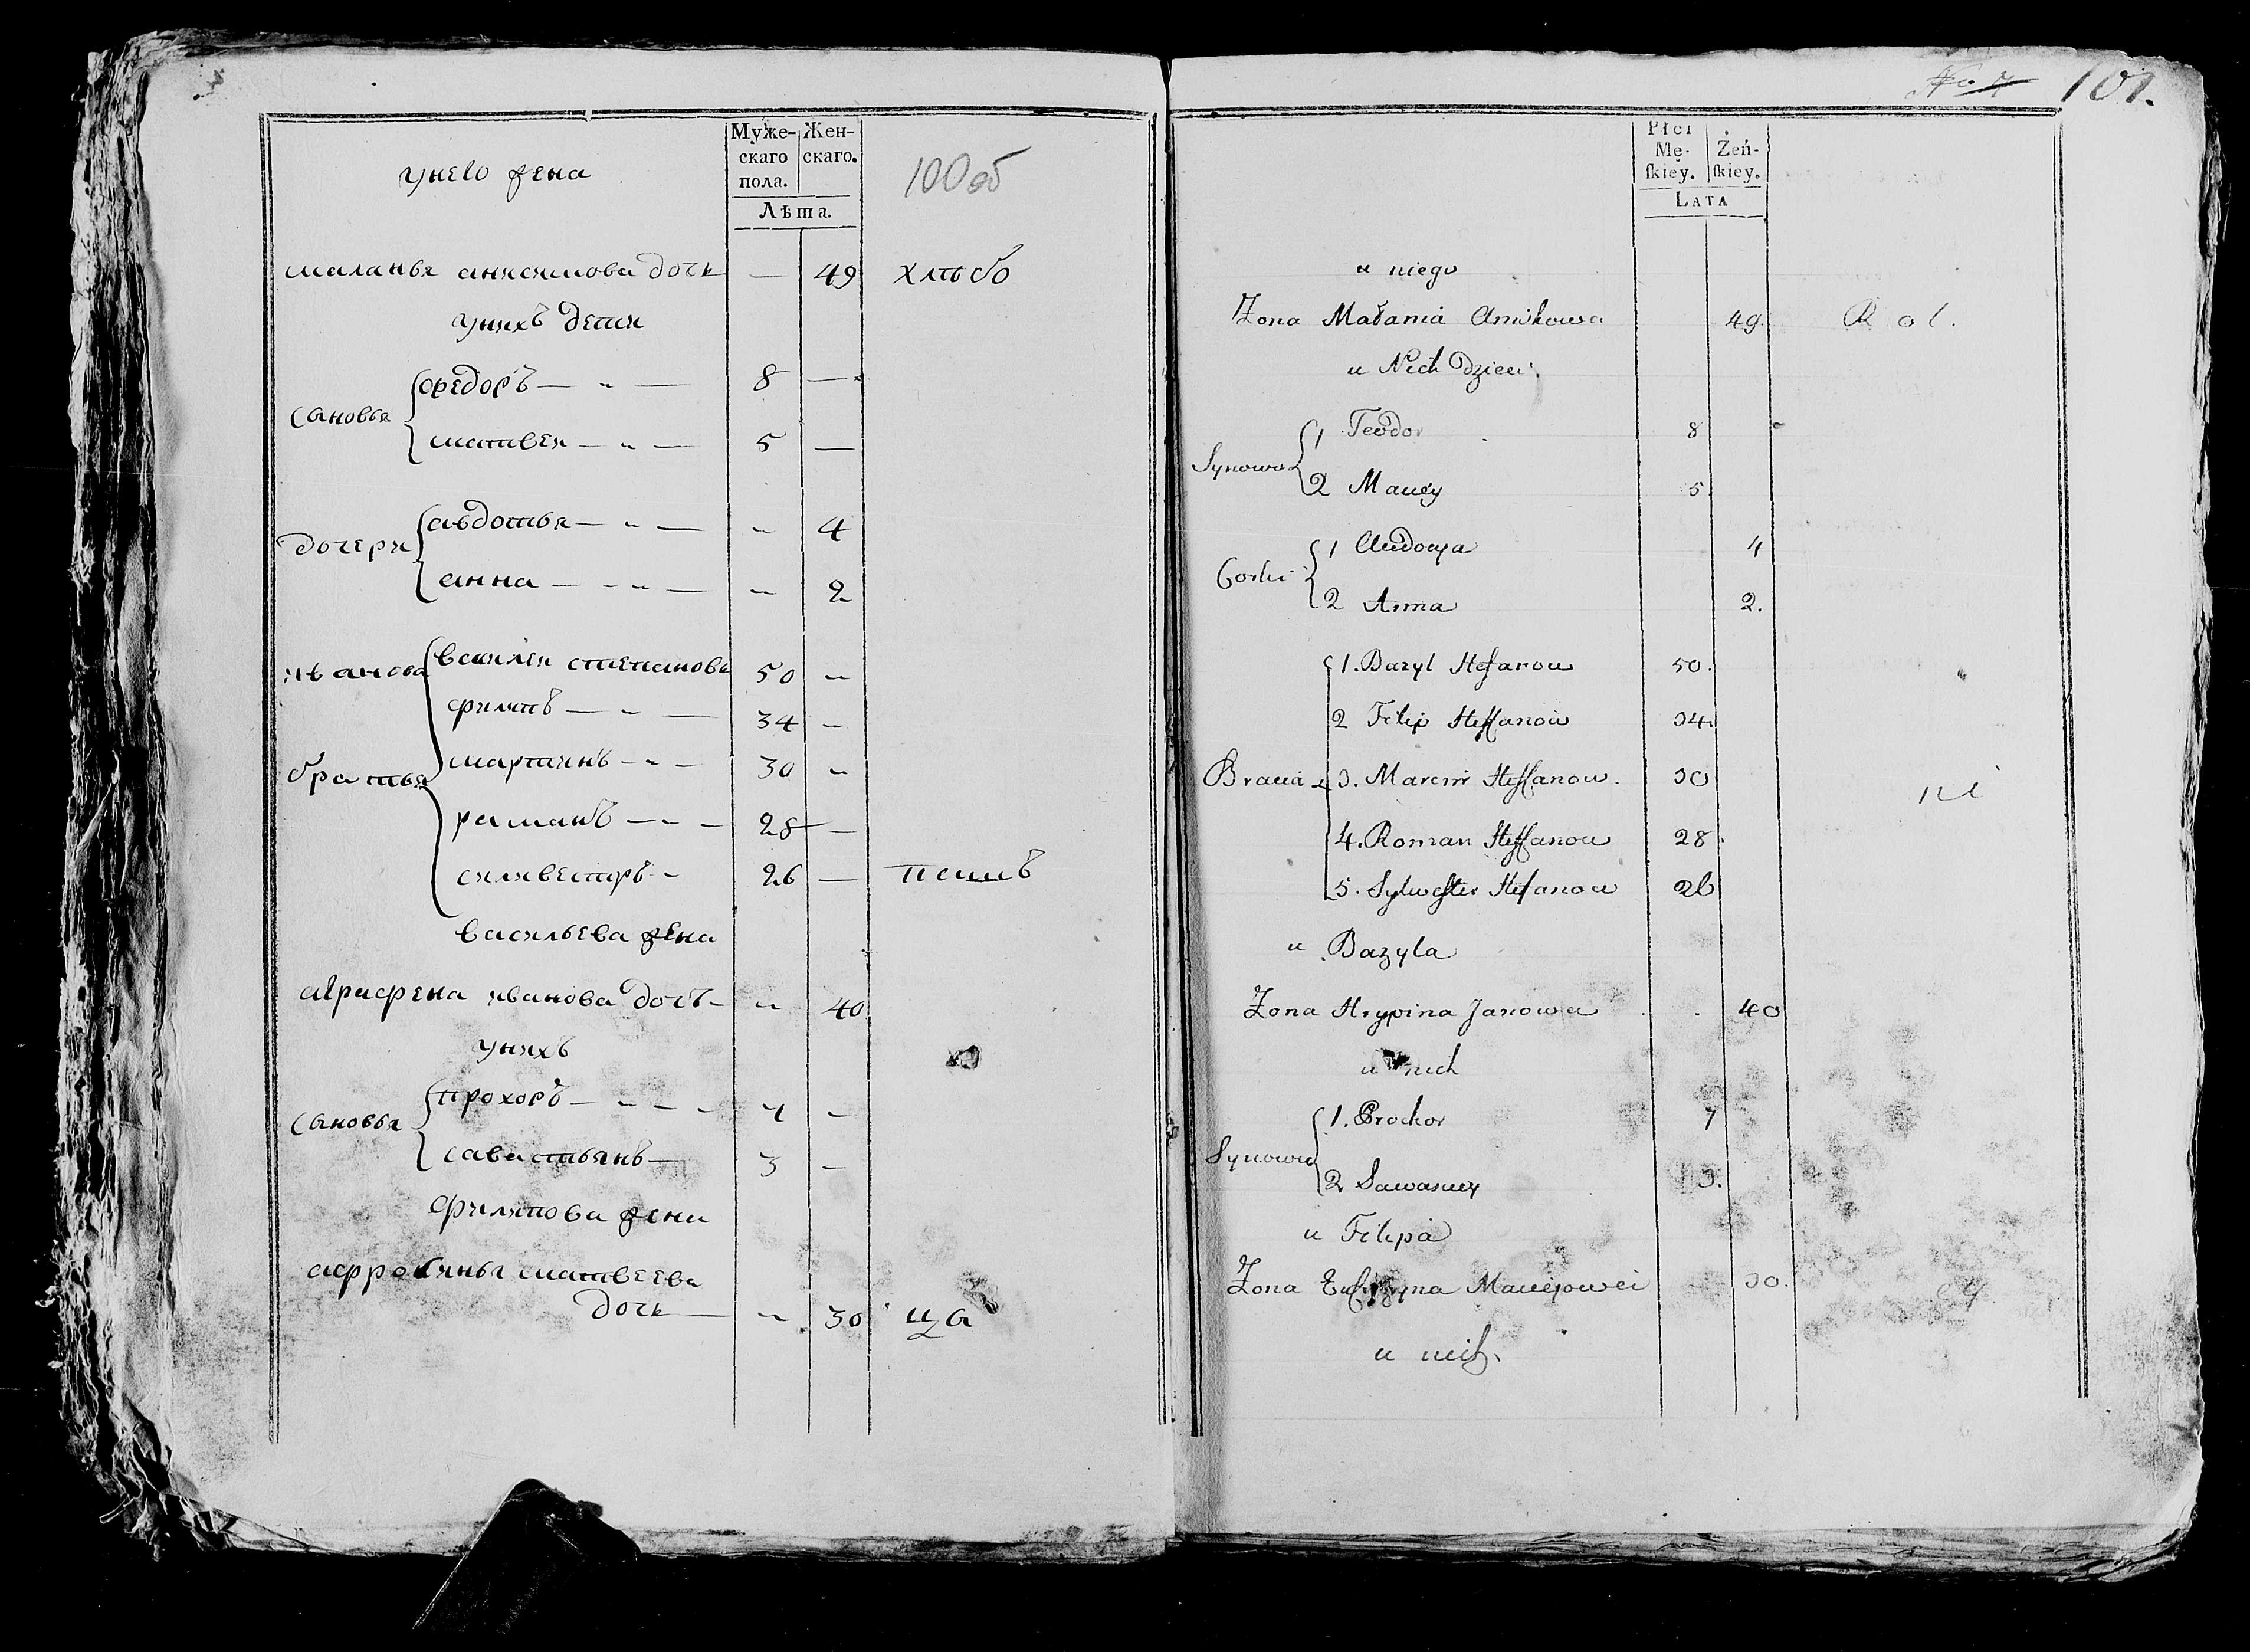 Муже- Жен-
скаго скаго.
пола.
Лѣта.
100 об
унего жена
маланья анисимова дочь — 49 хлѣбо
унихъ дети
сыновья
федоръ — " — 8 —
матвей — " — 5 —
дочери
авдотья — " — " 4
анна — - " — " 2
ивановы братья
василей степановъ 50 "
филипъ — " — 34 "
мартинъ - " - 30 "
раманъ — " — 28 —
силивестръ - " 26 — паш
васильева жена
аграфена иванова дочь - " 40
унихъ
сыновья
прохоръ — - - - 7 -
савастьянъ — 3 -
филипова жена
матвеева
дочь — " 30 ца
No 7 101.
Płci
Mę- Żeń-
ſkiey. ſkiey.
LATA
u niego
Zona Małania Anikowa 49. Rol.
u Nich Dzieci.
Synowie
1 Teodor 8
2 Maciey 5.
Corki
1 Audocya 4
2 Anna 2.
Bracia
1. Bazyl Stefanow 50.
2 Filip Steffanow 34.
3. Marcin Steffanow. 30 ni
4. Roman Steffanow 28.
5. Sylwester Stefanow 26
u Bazyla
Zona Hrypina Janowa 40
u nich
Synowie
1. Prochor 7
2 Sawasciey 3.
u Filipa
Zona Maciejowa 30.
u nich.